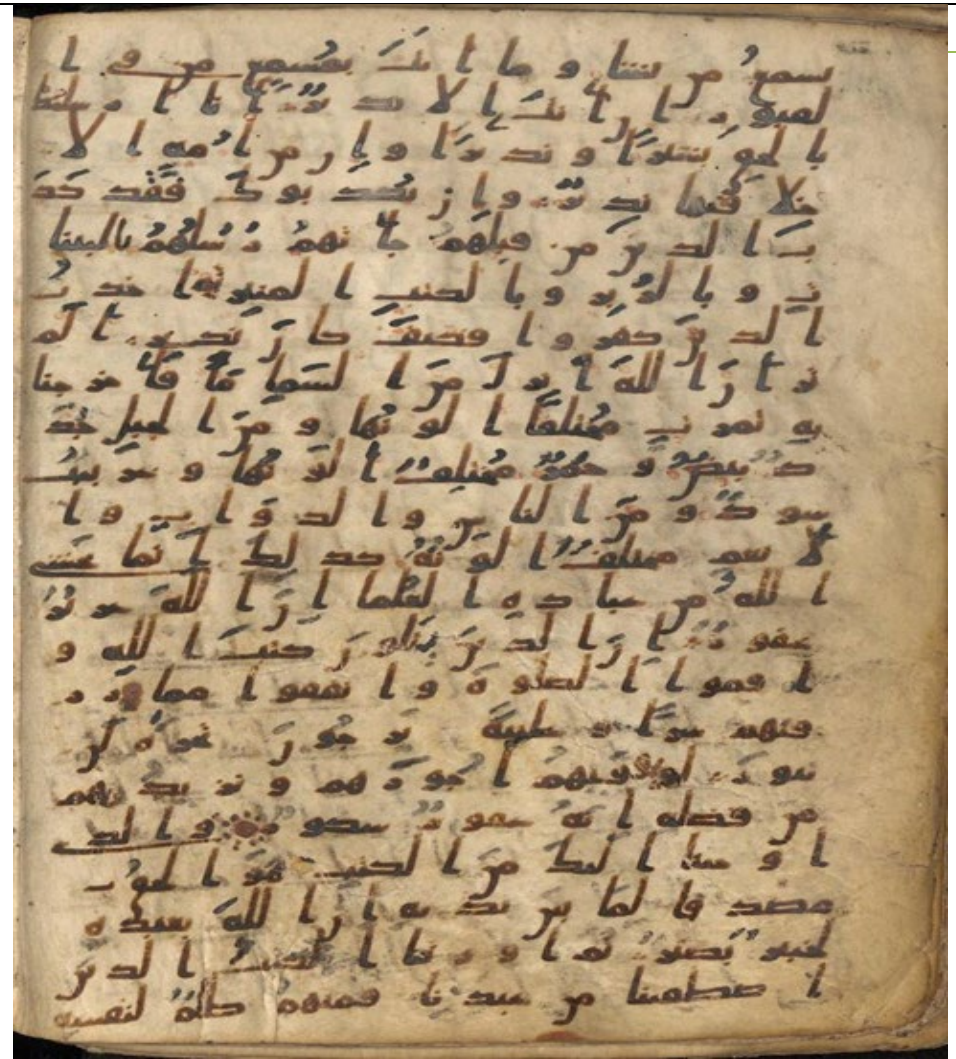 يسمع من يشا وما انت بمسمع من في ا
لقبور ان انت الا نذير انا ارسلنك
بالحق بشيرا ونذيرا وان من امه الا
خلا فيها نذير وان يكذبوك فقد كذ
ب الذين من قبلهم جاتهم رسلهم بالبينا
ت وبالزبر وبالكتب المنير ثم اخذت
الذين كفروا فكيف كان نكير الم
تر ان الله انزل من السما ما فاخرجنا
به ثمرت مختلفا الونها ومن الجبل جد
د بيض وحمر مختلف الونها وغربيب
سود ومن الناس والدواب وا
لانعم مختلف الونه كذلك انما يخشى
الله من عباده العلما ان الله عزيز
غفور ان الذين يتلون كتب الله و
اقموا الصلوه وانفقوا مما رز
قنهم سرا وعلنيه يرجون تجره لن
تبور ليوفيهم اجورهم ويزيدهم
من فضله انه غفور شكور والذي
اوحينا اليك من الكتب هو الحق
مصدقا لما بين يديه ان الله بعباده
لخبير بصير ثم اورثنا الكتب الذين
اصطفينا من عبدنا فمنهم ظلم لنفسه